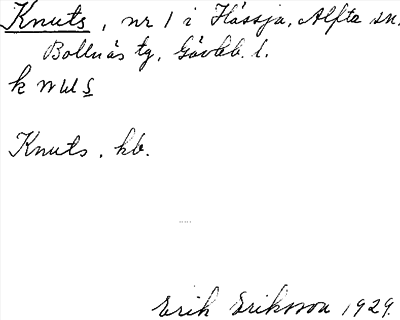 Knuts, nr 1 i Hässja, Alfta sn.
Bollnäs tg, Gävleb. l.
k nuts
Knuts, kb.
Erik Eriksson 1929.